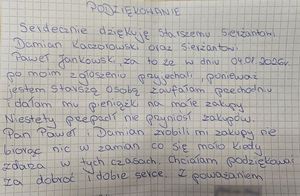 PODZIĘKOWANIE
Serdecznie dziękuję Starszemu Sierżantowi
Damian Kaczorowski oraz Sierżantowi
Paweł Jankowski, za to że w dniu 04.01.2026r
po moim zgłoszeniu przyjechali, ponieważ
jestem starszą osobą zaufałam przechodniu
i dałam mu pieniążki na małe zakupy
Niestety przepadł nie przyniósł zakupów.
Pan Paweł i Damian zrobili mi zakupy nie
biorąc nic w zamian co się mało kiedy
zdaża w tych czasach. Chciałam podziękować
za dobroć i dobre serce. Z poważaniem